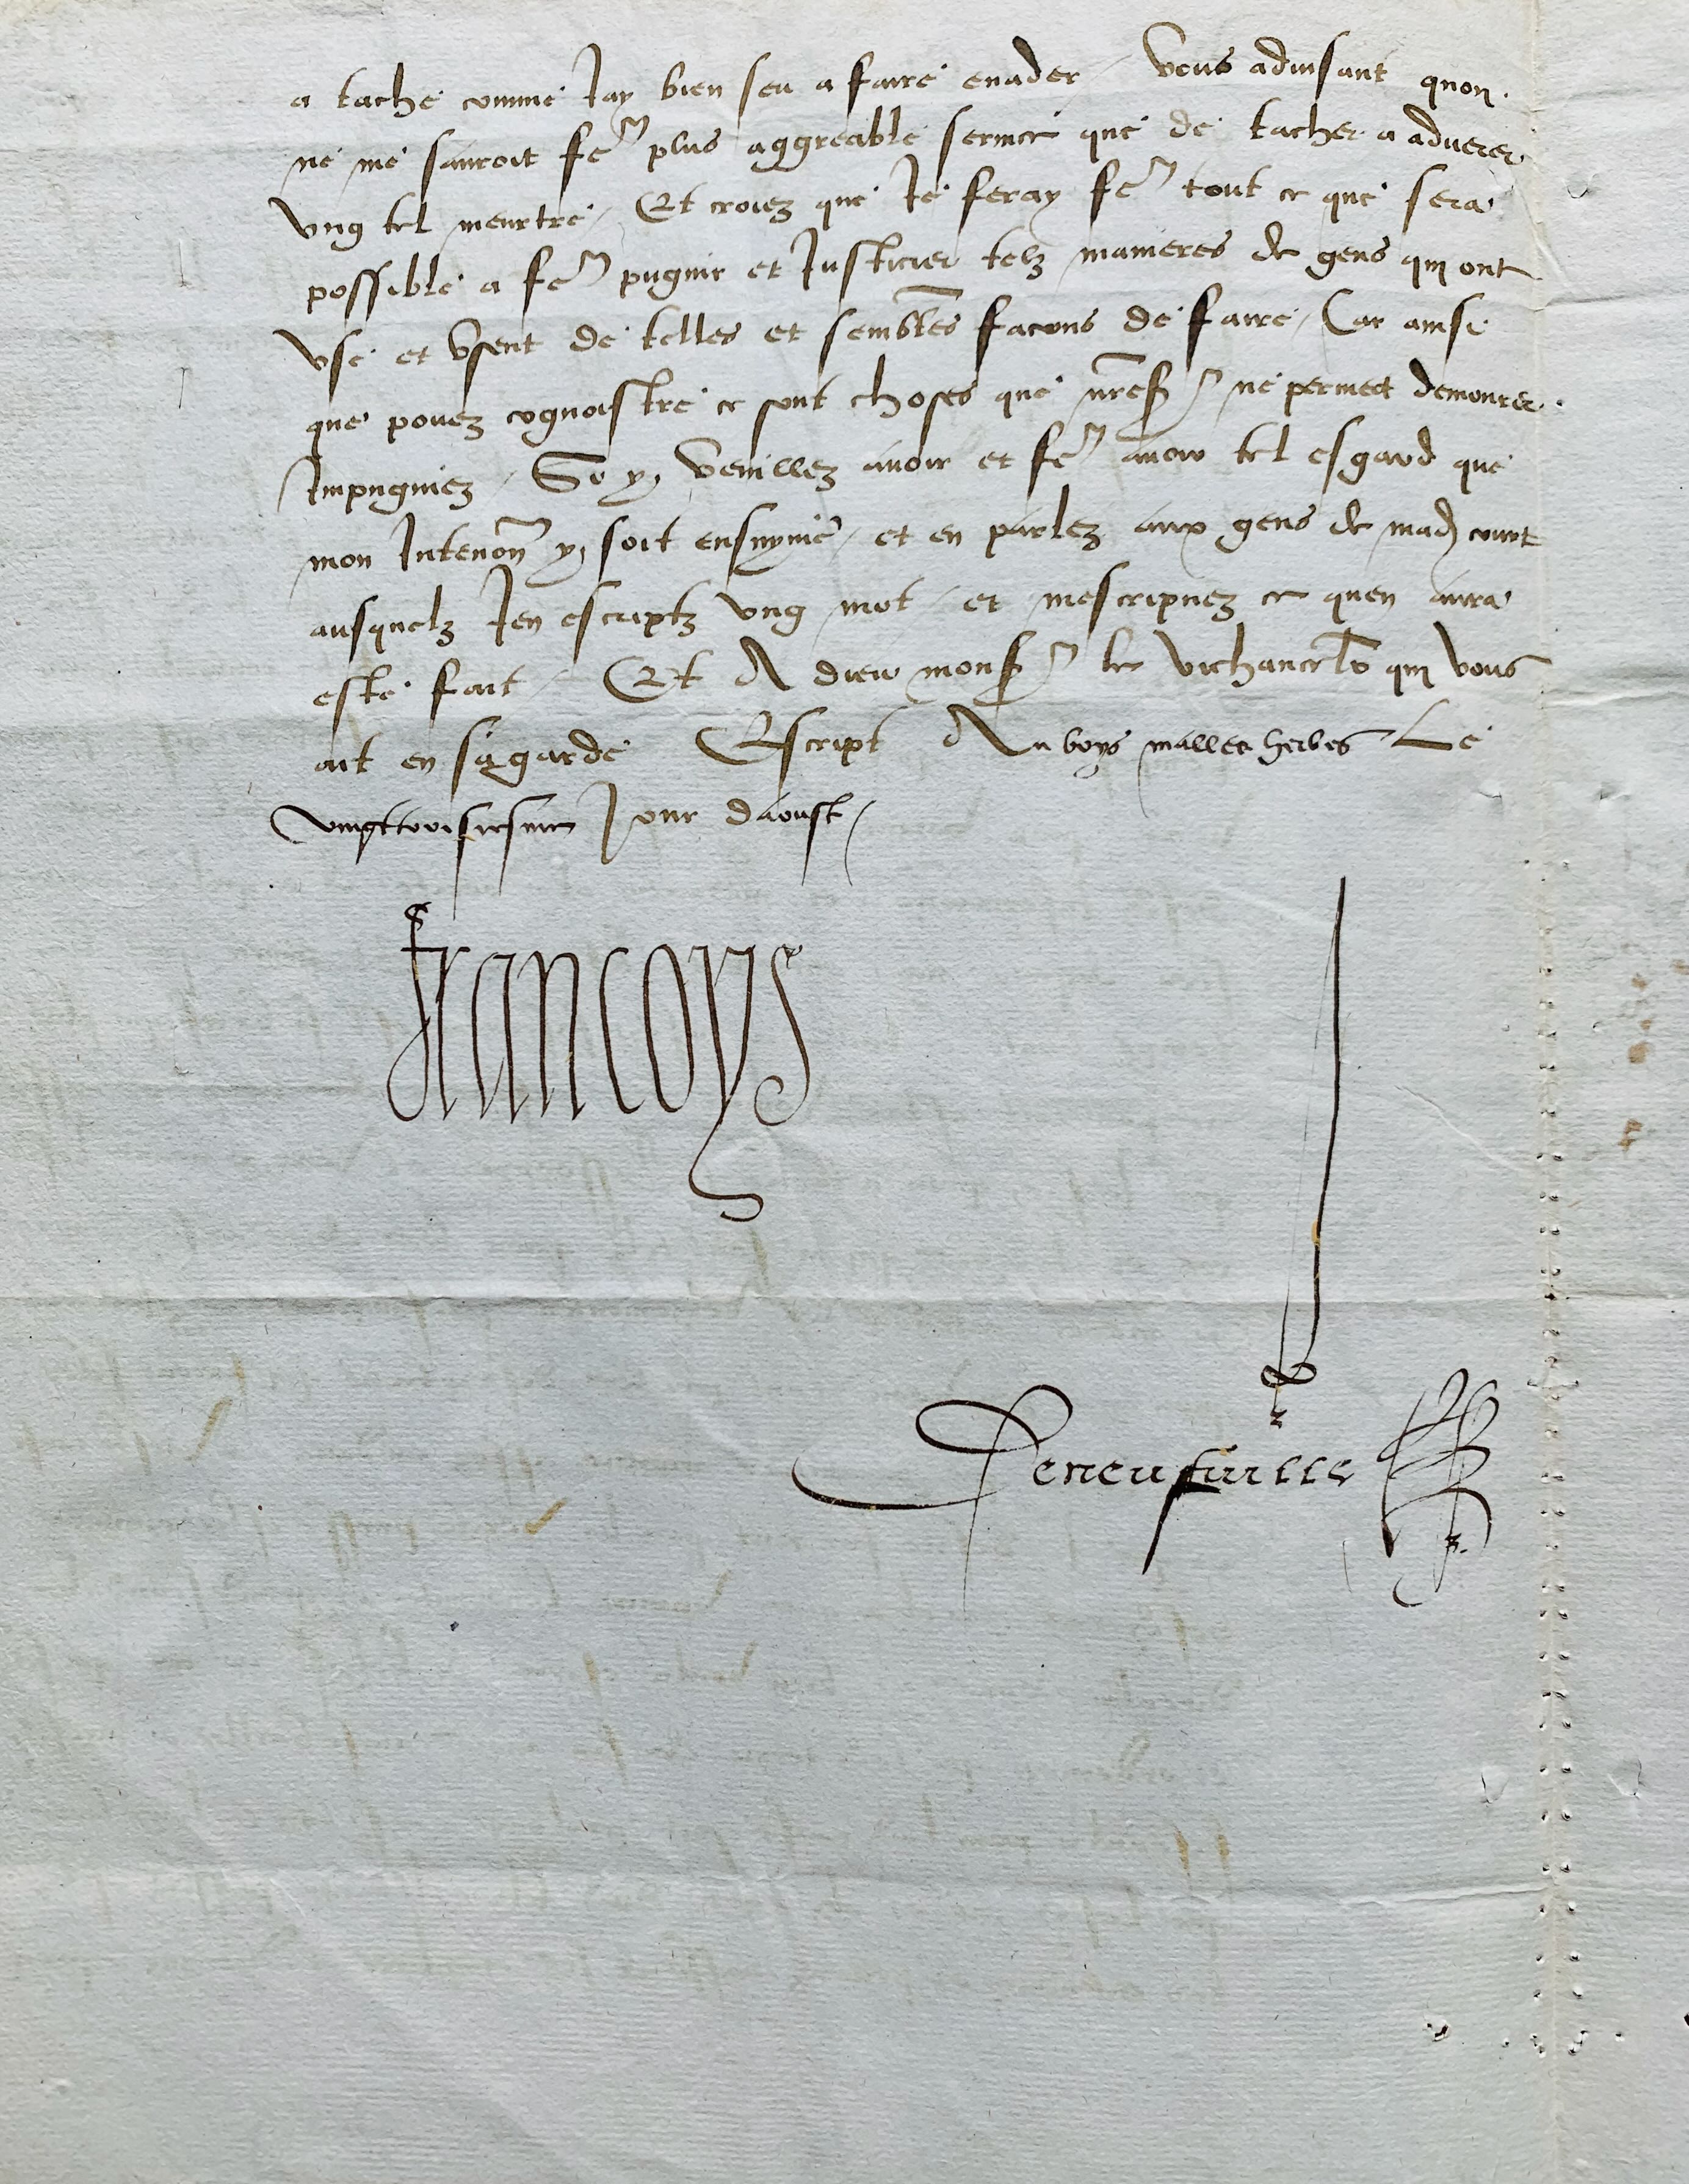 a tache comme Jay bien sceu a faire euader / Vous aduisant quon
ne me sauroit fe~ plus aggreable seruice que de tacher a aduerer
vng tel meurtre / Et croiez que Je feray fe~ tout ce que sera
possible a fe~ pugnir et Justicier telz manieres de gens qui ont
vse et vsent de telles et semblēs facons de faire / Car ainsi
que pouez cognoistre ce sont choses que nres~r ne permect demourer
Jmpugniez / Si y veuillez auoir et fe~ auoir tel esgard que
mon Intenōn y soit ensuyuie / et en parlez aux gens de mad court
ausquelz Jen escriptz vng mot / et mescripuez ce quen aura
este fait / Et A dieu mons~r le vichancel~r qui vous
ait en sa garde Escript Au boys mallesherbes Le
vingttroisiesme Jour daoust /
francoys
Deneufuille